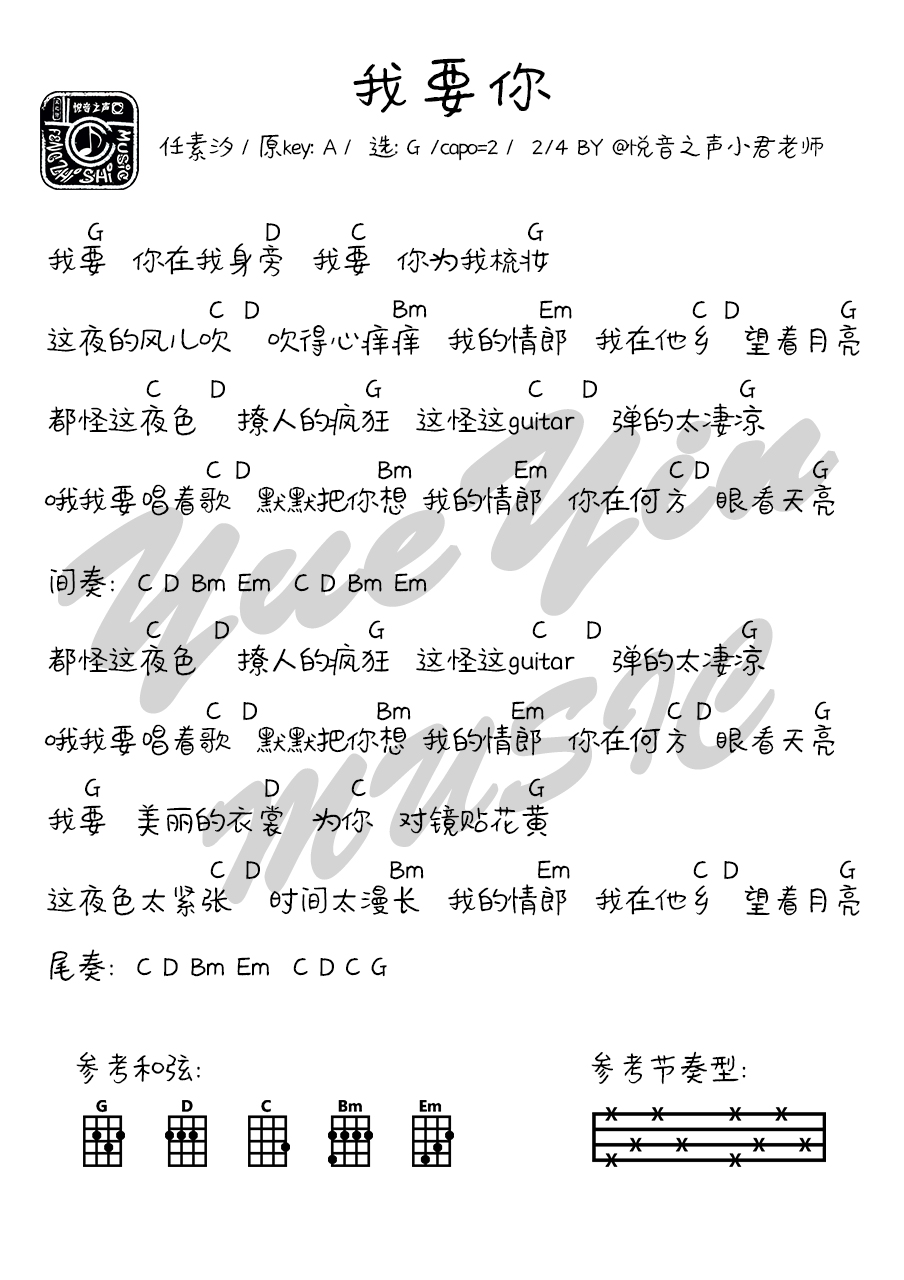 我要你
悦音之声
MUSIC
任素汐 / 原key: A / 选: G /capo=2 / 2/4 BY @悦音之声小君老师
G D C G
我要 你在我身旁 我要 你为我梳妆
C D Bm Em C D G
这夜的风儿吹 吹得心痒痒 我的情郎 我在他乡 望着月亮
C D G C D G
都怪这夜色 撩人的疯狂 这怪这guitar 弹的太凄凉
C D Bm Em C D G
哦我要唱着歌 默默把你想 我的情郎 你在何方 眼看天亮
间奏: C D Bm Em C D Bm Em
C D G C D G
都怪这夜色 撩人的疯狂 这怪这guitar 弹的太凄凉
C D Bm Em C D G
哦我要唱着歌 默默把你想 我的情郎 你在何方 眼看天亮
G D C G
我要 美丽的衣裳 为你 对镜贴花黄
C D Bm Em C D G
这夜色太紧张 时间太漫长 我的情郎 我在他乡 望着月亮
尾奏: C D Bm Em C D C G
Yue Yin
MUSIC
参考和弦: 参考节奏型:
G D C Bm Em
X X X X
X X X X
X X